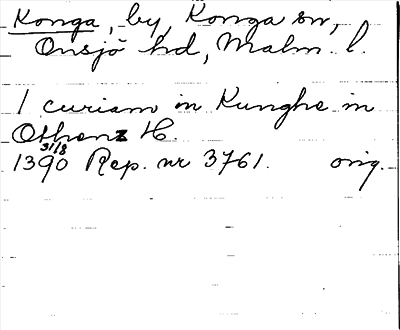 Konga, by, Konga sn,
Onsjö hd, Malm. l.
1 curiam in Kunghe in
Othenz H.
1390 31/8 Rep. nr 3761. orig.